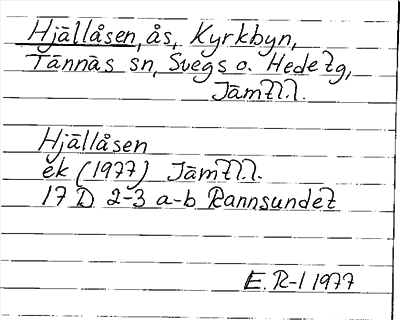 Hjällåsen, ås, Kyrkbyn,
Tännäs sn, Svegs o. Hede tg,
Jämtl.l.
Hjällåsen
ek (1977) Jämtl.l.
17 D 2-3 a-b Rannsundet
E. R-l 1977